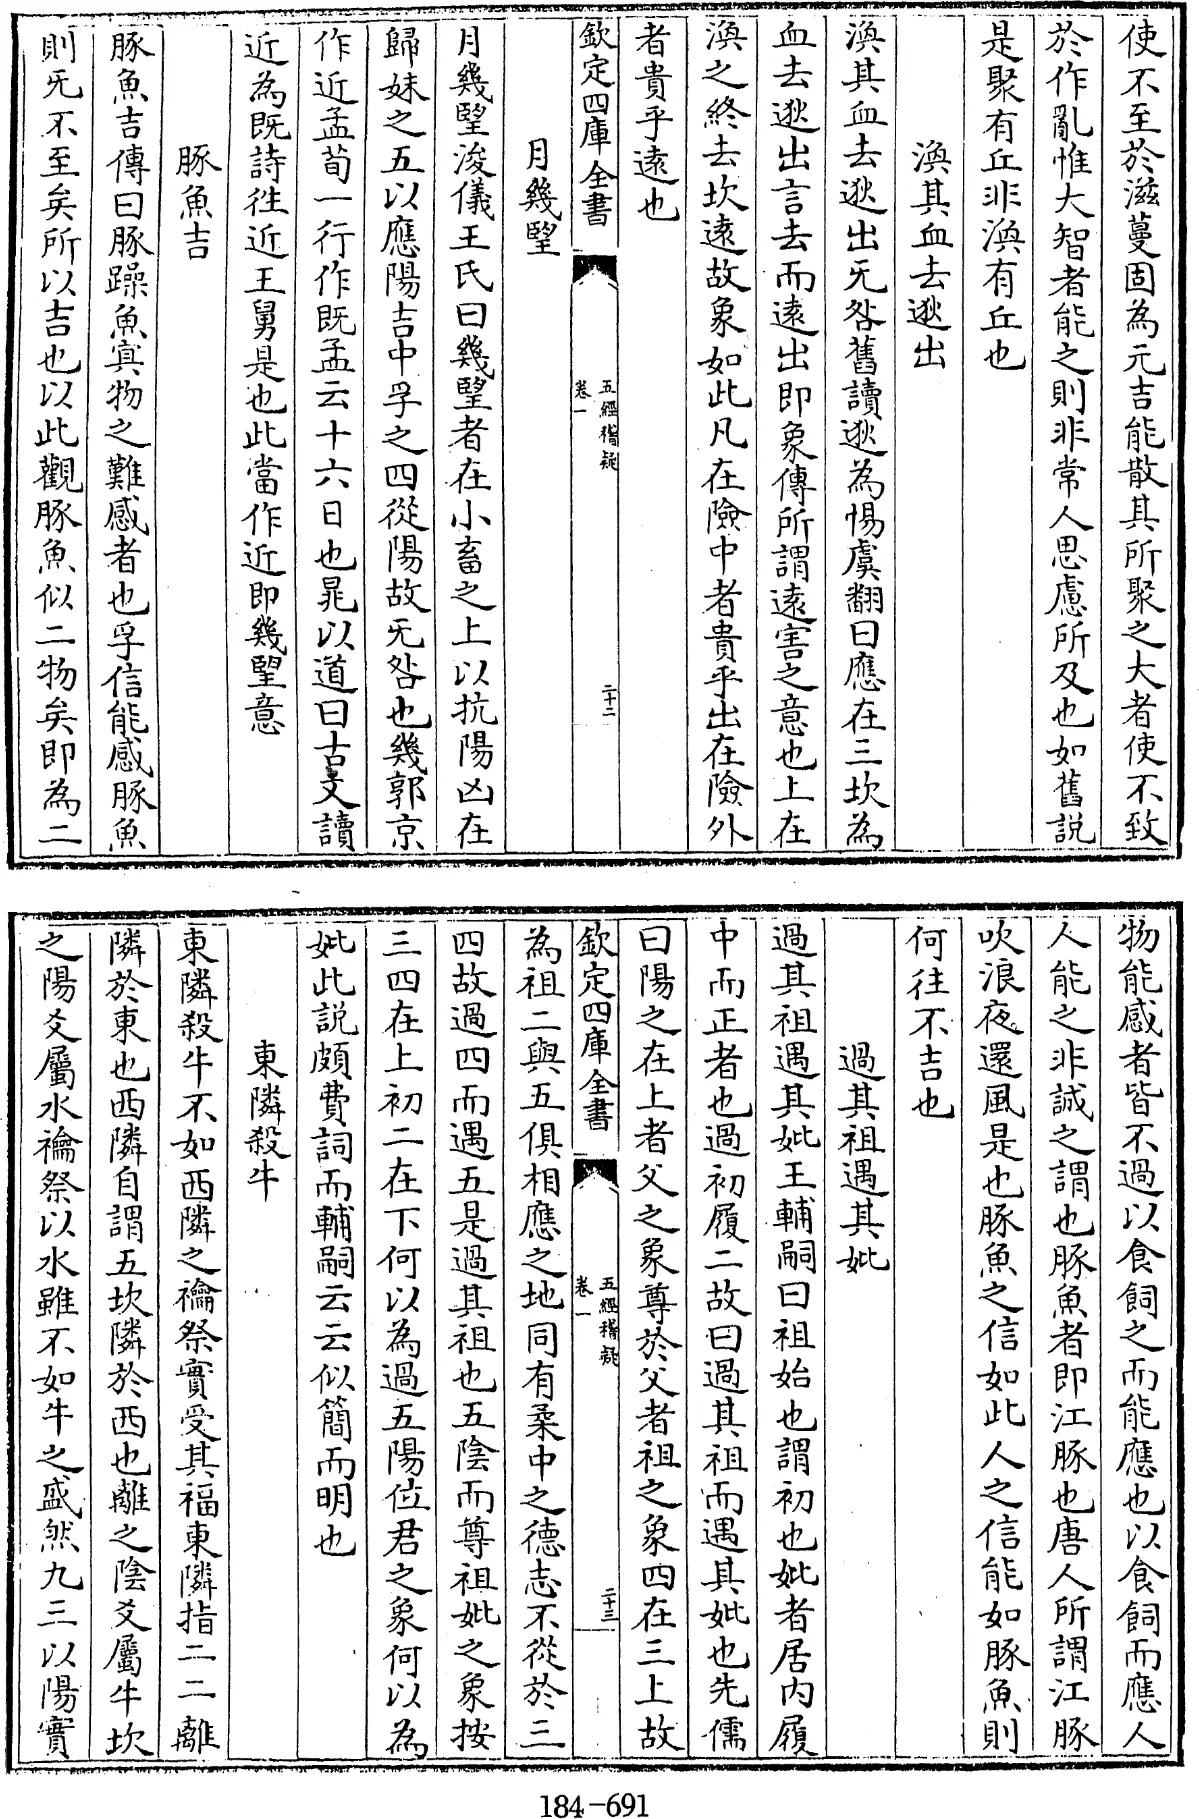 使不至於滋蔓固為元吉能散其所聚之大者使不致
於作亂惟大智者能之則非常人思慮所及也如舊説
是聚有丘非渙有丘也
渙其血去逖出
渙其血去逖出无咎舊讀逖為惕虞翻曰應在三坎為
血去逖出言去而遠出即象傳所謂遠害之意也上在
渙之終去坎遠故象如此凡在險中者貴乎出在險外
者貴乎遠也
欽定四庫全書
五經稽疑
卷一
二十二
月幾望
月幾望浚儀王氏曰幾望者在小畜之上以抗陽凶在
歸妹之五以應陽吉中孚之四從陽故无咎也幾郭京
作近孟荀一行作既孟云十六日也晁以道曰古文讀
近為既詩徃近王舅是也此當作近即幾望意
豚魚吉
豚魚吉傳曰豚躁魚㝠物之難感者也孚信能感豚魚
則无不至矣所以吉也以此觀豚魚似二物矣即為二
物能感者皆不過以食飼之而能應也以食飼而應人
人能之非誠之謂也豚魚者即江豚也唐人所謂江豚
吹浪夜還風是也豚魚之信如此人之信能如豚魚則
何往不吉也
過其祖遇其妣
過其祖遇其妣王輔嗣曰祖始也謂初也妣者居内履
中而正者也過初履二故曰過其祖而遇其妣也先儒
曰陽之在上者父之象尊於父者祖之象四在三上故
欽定四庫全書
五經稽疑
卷一
二十三
為祖二與五俱相應之地同有柔中之德志不從於三
四故過四而遇五是過其祖也五陰而尊祖妣之象按
三四在上初二在下何以為過五陽位君之象何以為
妣此説頗費詞而輔嗣云云似簡而明也
東隣殺牛
東隣殺牛不如西隣之禴祭實受其福東隣指二二離
隣於東也西隣自謂五坎隣於西也離之陰爻屬牛坎
之陽爻屬水禴祭以水雖不如牛之盛然九三以陽實
184-691